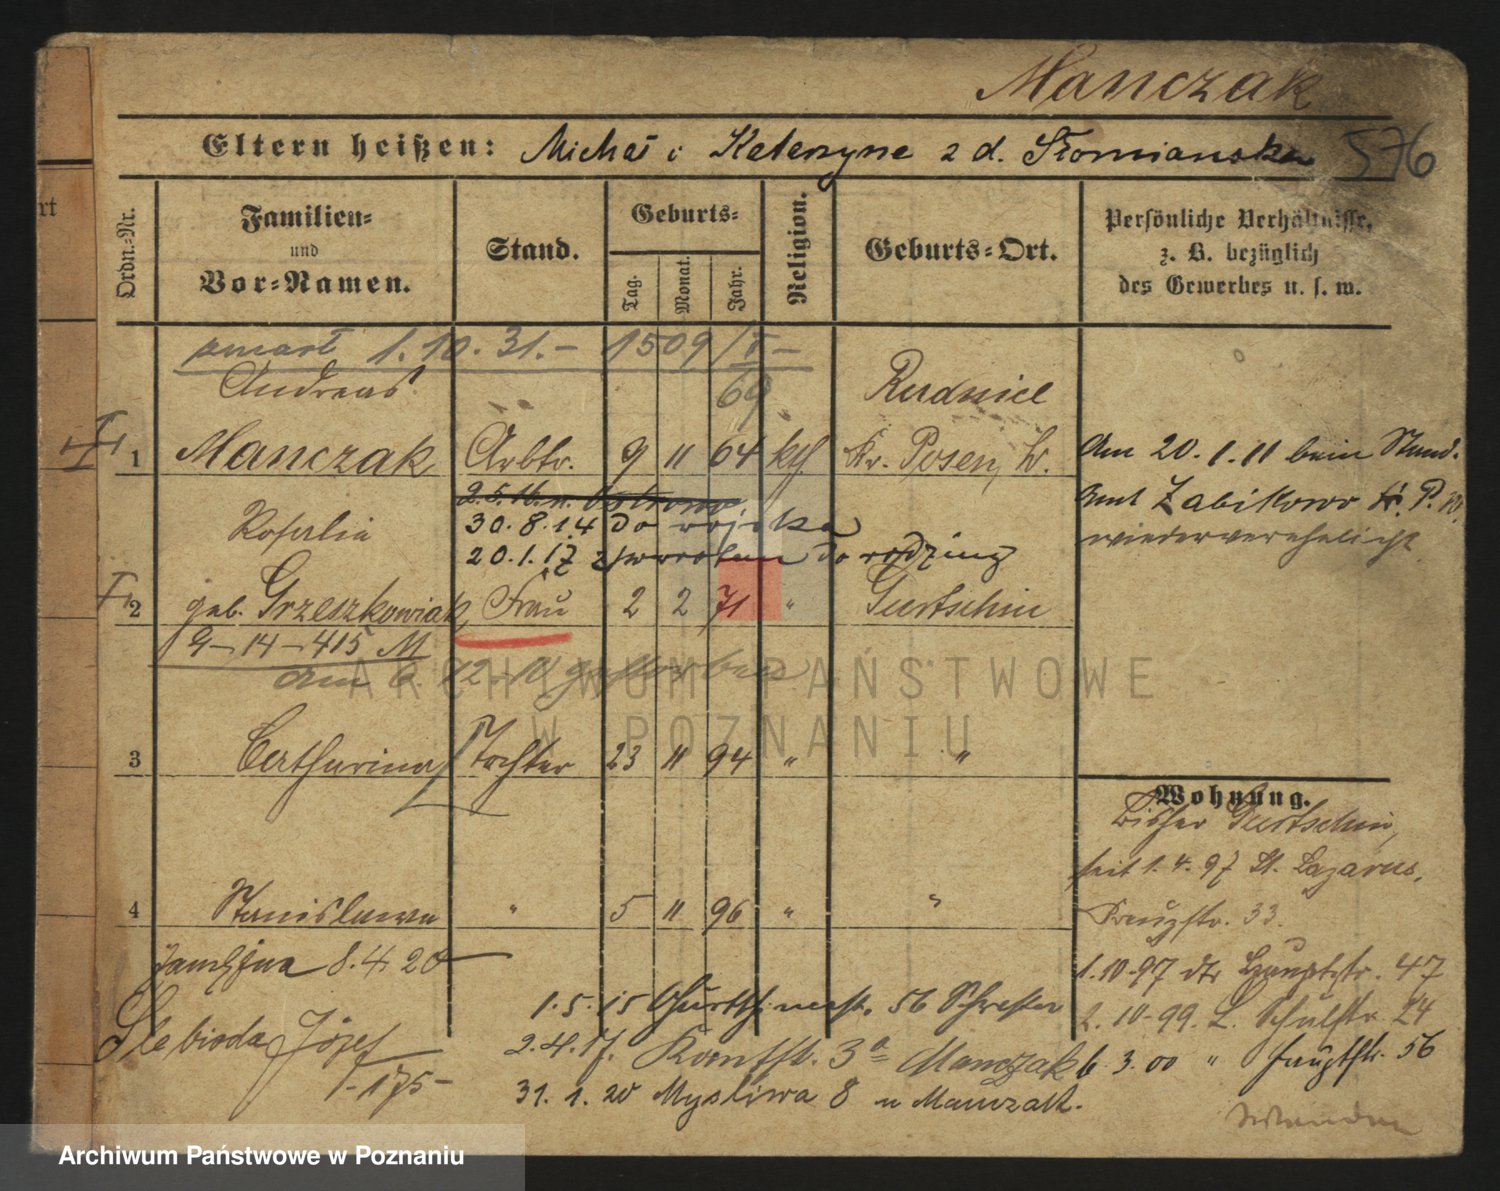 Manczak
Eltern heißen: Michał i Katarzyna z d. Słomianska 576
Ordn.-Nr.
Familien-
und
Vor-Namen.
Stand.
Geburts-
Tag.
Monat.
Jahr.
Religion.
Geburts-Ort.
Persönliche Verhältnisse,
z. B. bezüglich
des Gewerbes u. s. w.
rt
zmarł 1.10.31.- 1509/
Andreas 69 Rudnicz
1 Manczak Arbtr. 9 11 64 kth Kr. Posen, W.
Am 20.1.11 beim Stand.
amt Zabikowo Kr. P. W.
wiederverehelicht
30.8.14 do wojska
Rosalia
20.1.17 z powrotem do rodziny
2 geb. Grzeszkowiak, Frau 2 2 71 " Gurtschin
G-14-415 M
am 6. 12. gestorben
ARCHIWUM PAŃSTWOWE
W POZNANIU
3 Catharina Tochter 23 11 94 " "
Wohnung.
bisher Gurtschin,
seit 1.4.97 St. Lazarus,
4 Stanislawa " 5 11 96 " "
33.
zamężna 8.4.20
1.10.97 Hauptstr. 47
Slebioda Józef
1.5.15 56 Schwester
2.10.99. L. Schulstr. 24
2.4.17. 3a Manczak
6.3.00 " Hauptstr. 56
-175-
31.1.20 Mysliwa 8 u Manczak.
Archiwum Państwowe w Poznaniu